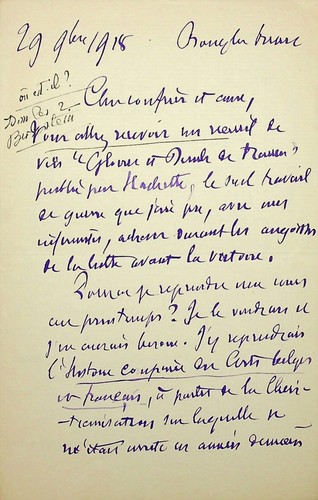 29 9bre/918
où est-il ?
Cher confrère et ami,
Vous allez recevoir un recueil de
vers "Gloires et Deuils de
publié par Hachette, le seul travail
de guerre que j'aie pu, avec mes
infirmités, achever durant les angoisses
de la lutte avant la victoire.
Pourrai-je reprendre mon cours
au printemps ? Je le voudrais et
j'en aurais besoin. J'y reprendrais
l'histoire comparée des Arts belges
et français, à partir de la Chris-
tianisation sur laquelle je
m'étais arrêté en années dernières